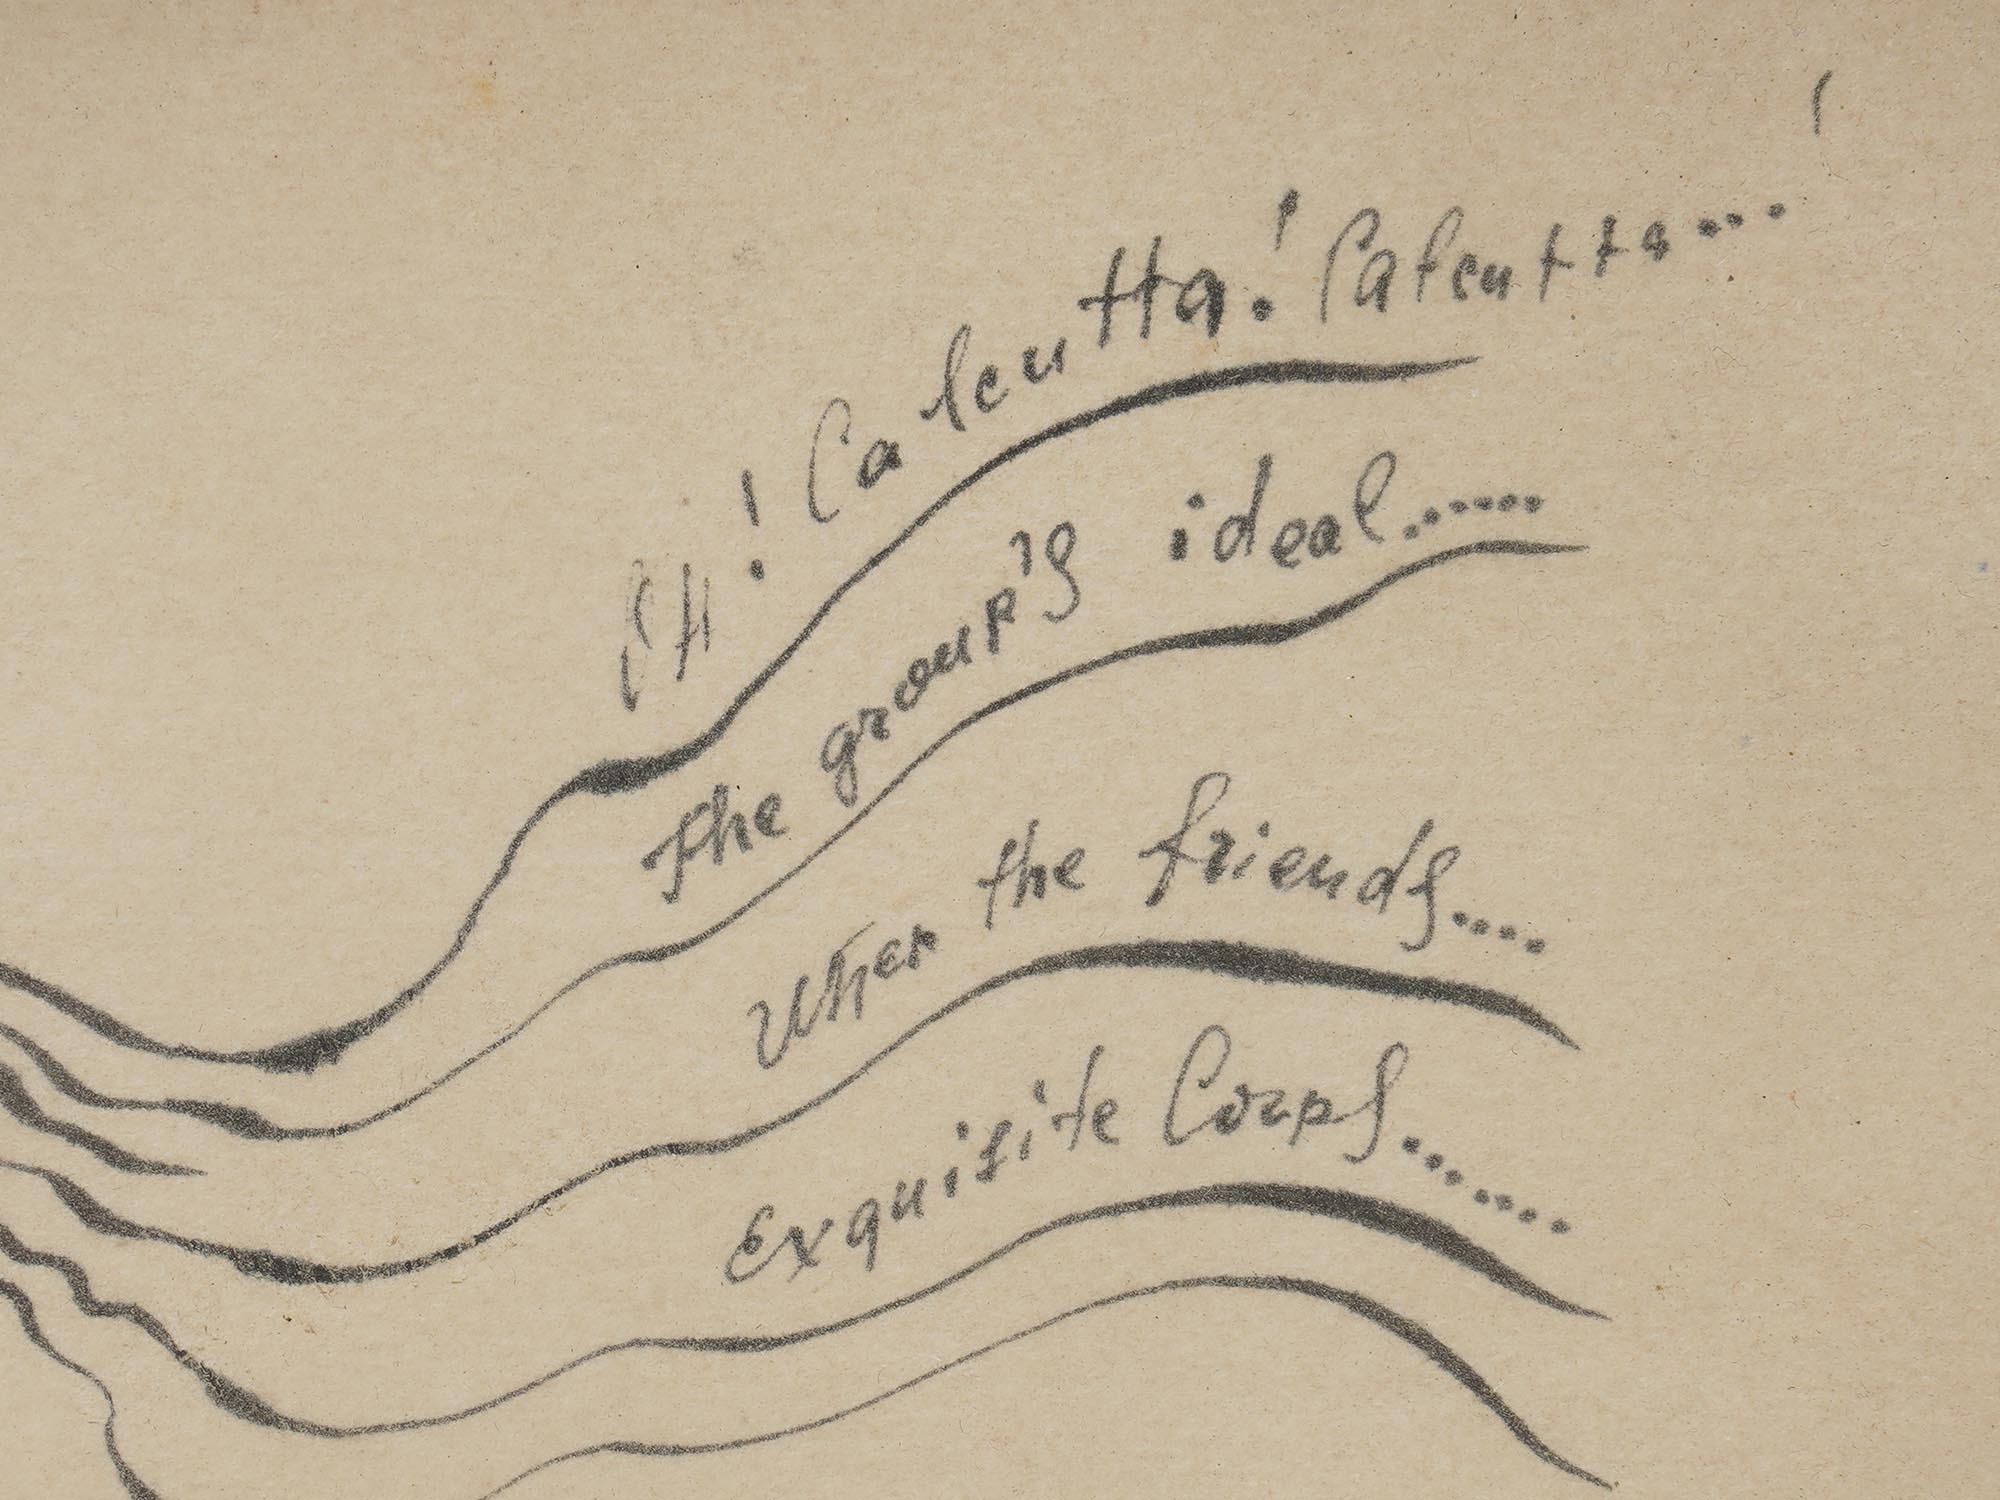 Oh! Calcutta! Calcutta...
The group's ideal......
When the friends....
Exquisite Corps.......